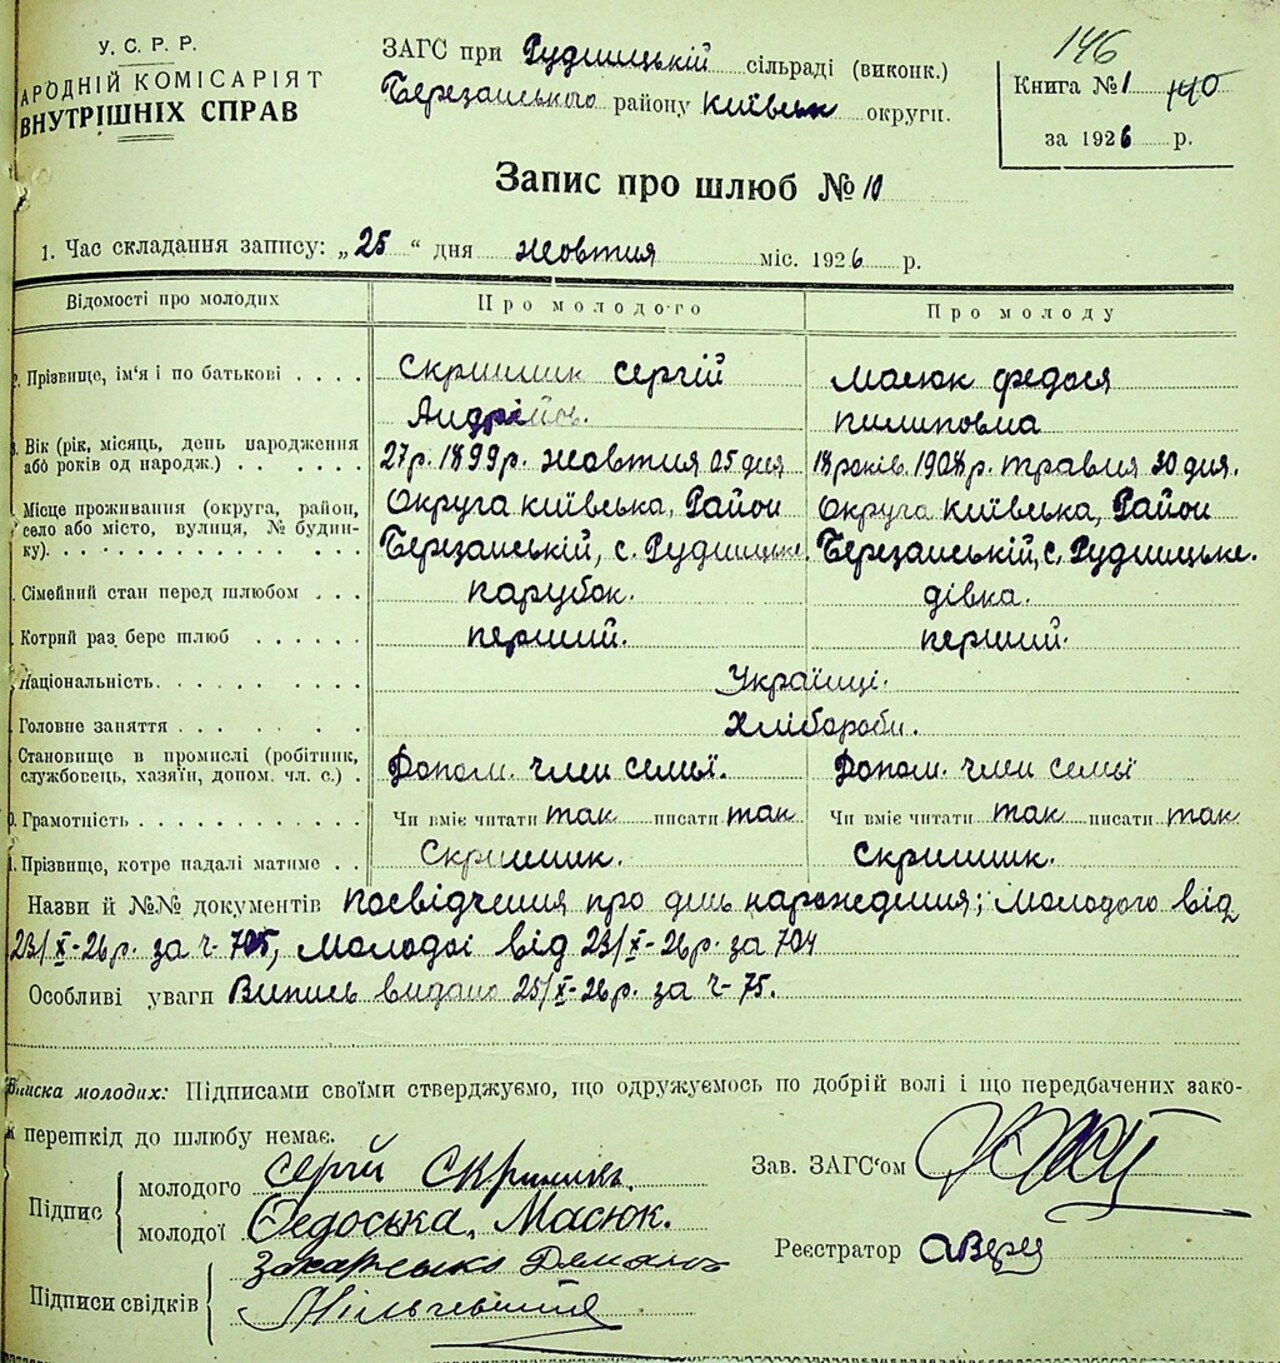 У. С. Р. Р.
АРОДНІЙ КОМІСАРІЯТ
ВНУТРІШНІХ СПРАВ
ЗАГС при Рудницькій сільраді (виконк.)
Березанського району Київськ округи.
146
Книга №1 140
за 1926 р.
Запис про шлюб № 10
1. Час складання запису: „25“ дня жовтня міс. 1926 р.
Відомості про молодих Про молодого Про молоду
2. Прізвище, ім'я і по батькові . . . . Скринник Сергій Масюк Федося
Андрійов. Пилиповна
3. Вік (рік, місяць, день народження
або років од народж.) . . . . . . 27р. 1899р. жовтня 05 дня 18 років. 1908р. травня 30 дня.
Місце проживання (округа, район, Округа Київська, Район Округа Київська, Район
село або місто, вулиця, № будин-
ку). . . . . . . . . . . . . . . Березанській, с. Рудницьке. Березанській, с. Рудницьке.
Сімейний стан перед шлюбом . . . парубок. дівка.
Котрий раз бере шлюб . . . . . . перший. перший.
Національність. . . . . . . . . . Українці.
Головне заняття . . . . . . . Хлібороби.
Становище в промислі (робітник,
службовець, хазяїн, допом. чл. с.) . Допом. член семьї. Допом. член семьї
0. Грамотність . . . . . . . . . . . . Чи вміє читати так писати так Чи вміє читати так писати так
1. Прізвище, котре надалі матиме . . Скринник. Скринник.
Назви й №№ документів посвідчення про день нарождения; Молодого від
23/X-26р. за ч- 705, Молодоі від 23/X-26р. за 704
Особливі уваги Випись видано 25/X-26р. за ч- 75.
Виписка молодих: Підписами своїми стверджуємо, що одружуємось по добрій волі і що передбачених зако-
м перешкід до шлюбу немає.
Підпис
молодого Сергій Скринник.
молодої Федоська, Масюк.
Зав. ЗАГС'ом
Реєстратор
Підписи свідків